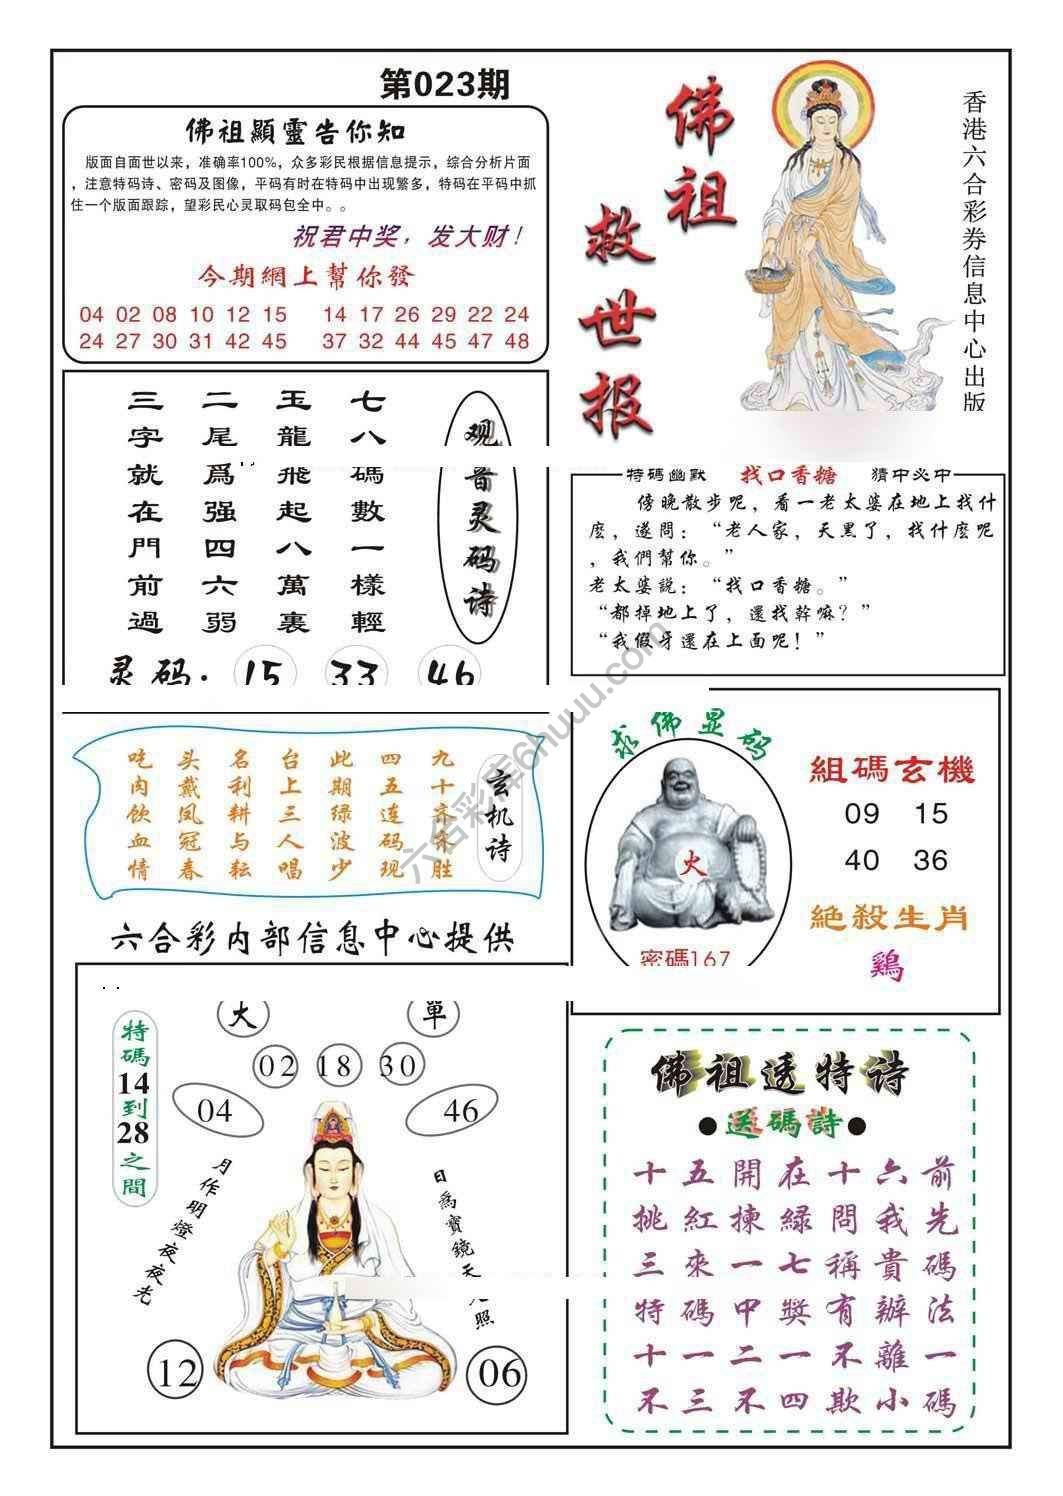 第023期
佛祖顯靈告你知
版面自面世以来，准确率100%，众多彩民根据信息提示，综合分析片面
，注意特码诗、密码及图像，平码有时在特码中出现繁多，特码在平码中抓
住一个版面跟踪，望彩民心灵取码包全中。。
祝君中奖，发大财！
今期網上幫你發
04 02 08 10 12 15 14 17 26 29 22 24
24 27 30 31 42 45 37 32 44 45 47 48
佛祖
救世报
香港六合彩券信息中心出版
观音灵码诗
七八碼數一樣輕
玉龍飛起八萬裏
二尾爲强四六弱
三字就在門前過
灵码：15 33 46
特碼幽默 找口香糖 猜中必中
傍晚散步呢，看一老太婆在地上找什
麼，遂問：“老人家，天黑了，找什麼呢
，我們幫你。”
老太婆説：“找口香糖。”
“都掉地上了，還找幹嘛？”
“我假牙還在上面呢！”
玄机诗
九十齐来胜
四五连码现
此期绿波少
台上三人唱
名利耕与耘
头戴凤冠春
吃肉饮血情
求佛显码
火
密碼167
組碼玄機
09 15
40 36
絶殺生肖
鷄
六合彩内部信息中心提供
特碼14到28之間
大 單
02 18 30
04 46
月作明燈夜夜光
日爲寶鏡天
照
12 06
佛祖透特诗
●送碼詩●
十五開在十六前
挑紅揀緑問我先
三來一七稱貴碼
特碼中獎有辦法
十一二一不離一
不三不四欺小碼
六合彩库6huuu.com